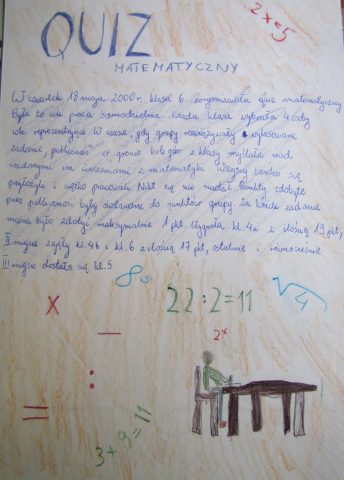 QUIZ
2x=5
MATEMATYCZNY
W czwartek 18 maja 2000r. klasa 6 zorganizowała quiz matematyczny
Była to praca samodzielna. Każda klasa wybrała 4 osoby
do reprezentacji. W czasie, gdy grupy rozwiązywały wylosowane
zadanie, "publiczność" w gronie kolegów z klasy myślała nad
zadanymi im zadaniami z matematyki. Wszyscy bardzo się
i ciężko pracowali. Nikt się nie nudził. Punkty zdobyte
przez publiczność były dodawane do punktów grupy. Za każde zadanie
można było zdobyć maksymalnie 1 pkt. Wygrała kl. 4a z ilością 19 pkt,
II miejsce zajęły kl. 4b i kl. 6 z ilością 17 pkt, ostatnie i
III miejsce dostała się kl. 5
8
22:2=11
√4
x
—
2x
:
=
3+9=11